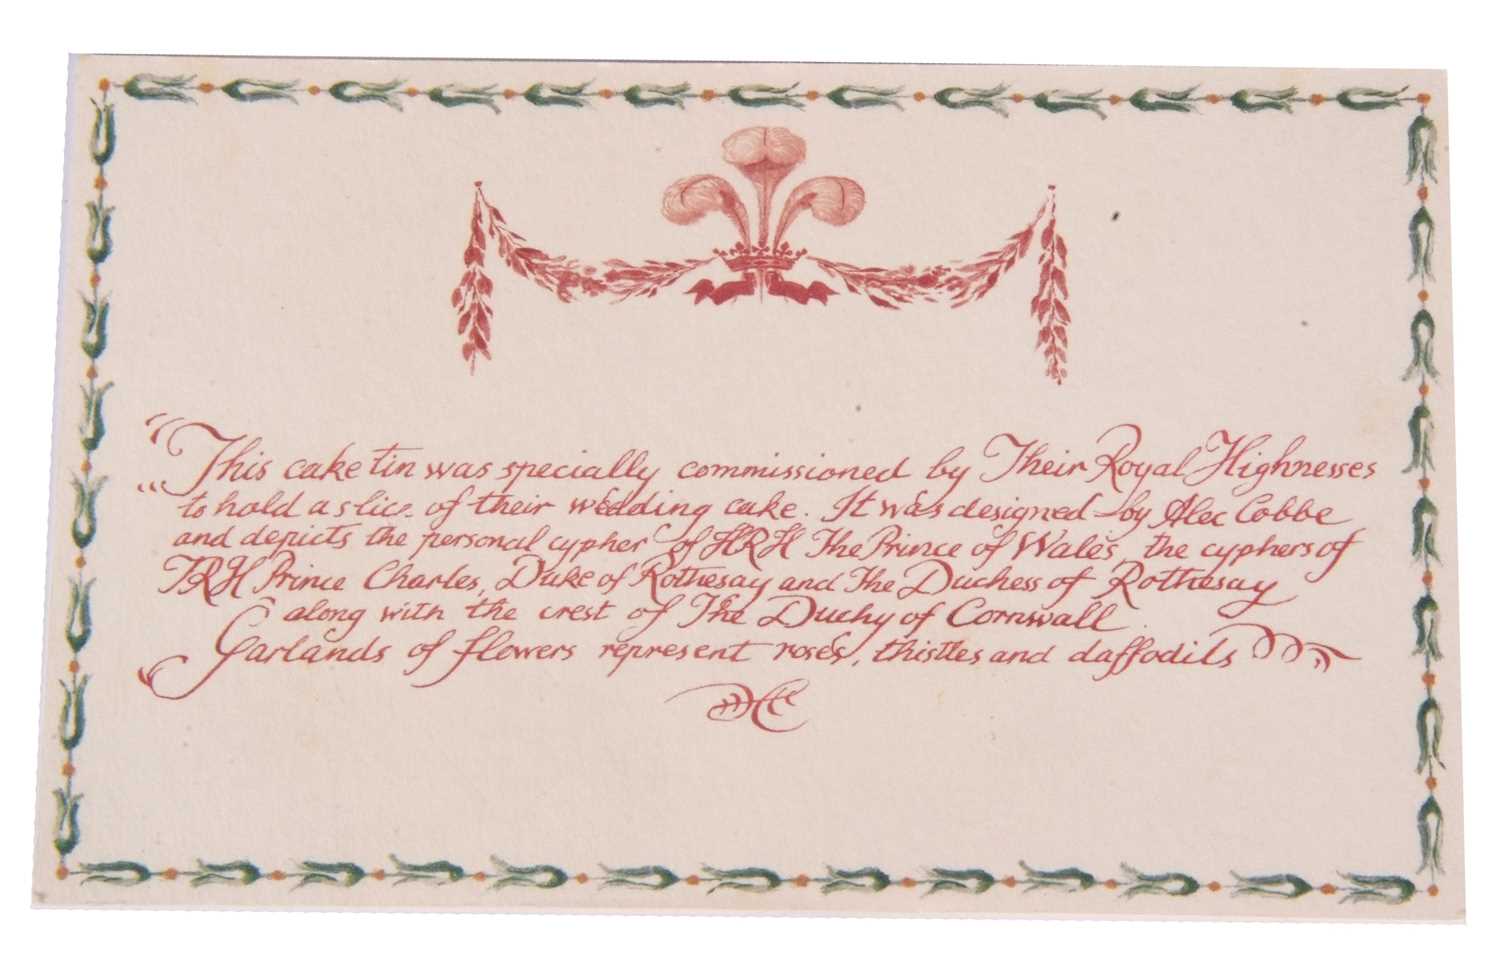 "This cake tin was specially commissioned by Their Royal Highnesses
to hold a slice of their wedding cake. It was designed by Alec Cobbe
and depicts the personal cypher of HRH The Prince of Wales, the cyphers of
TRH Prince Charles, Duke of Rothesay and The Duchess of Rothesay
along with the crest of The Duchy of Cornwall.
Garlands of flowers represent roses, thistles and daffodils